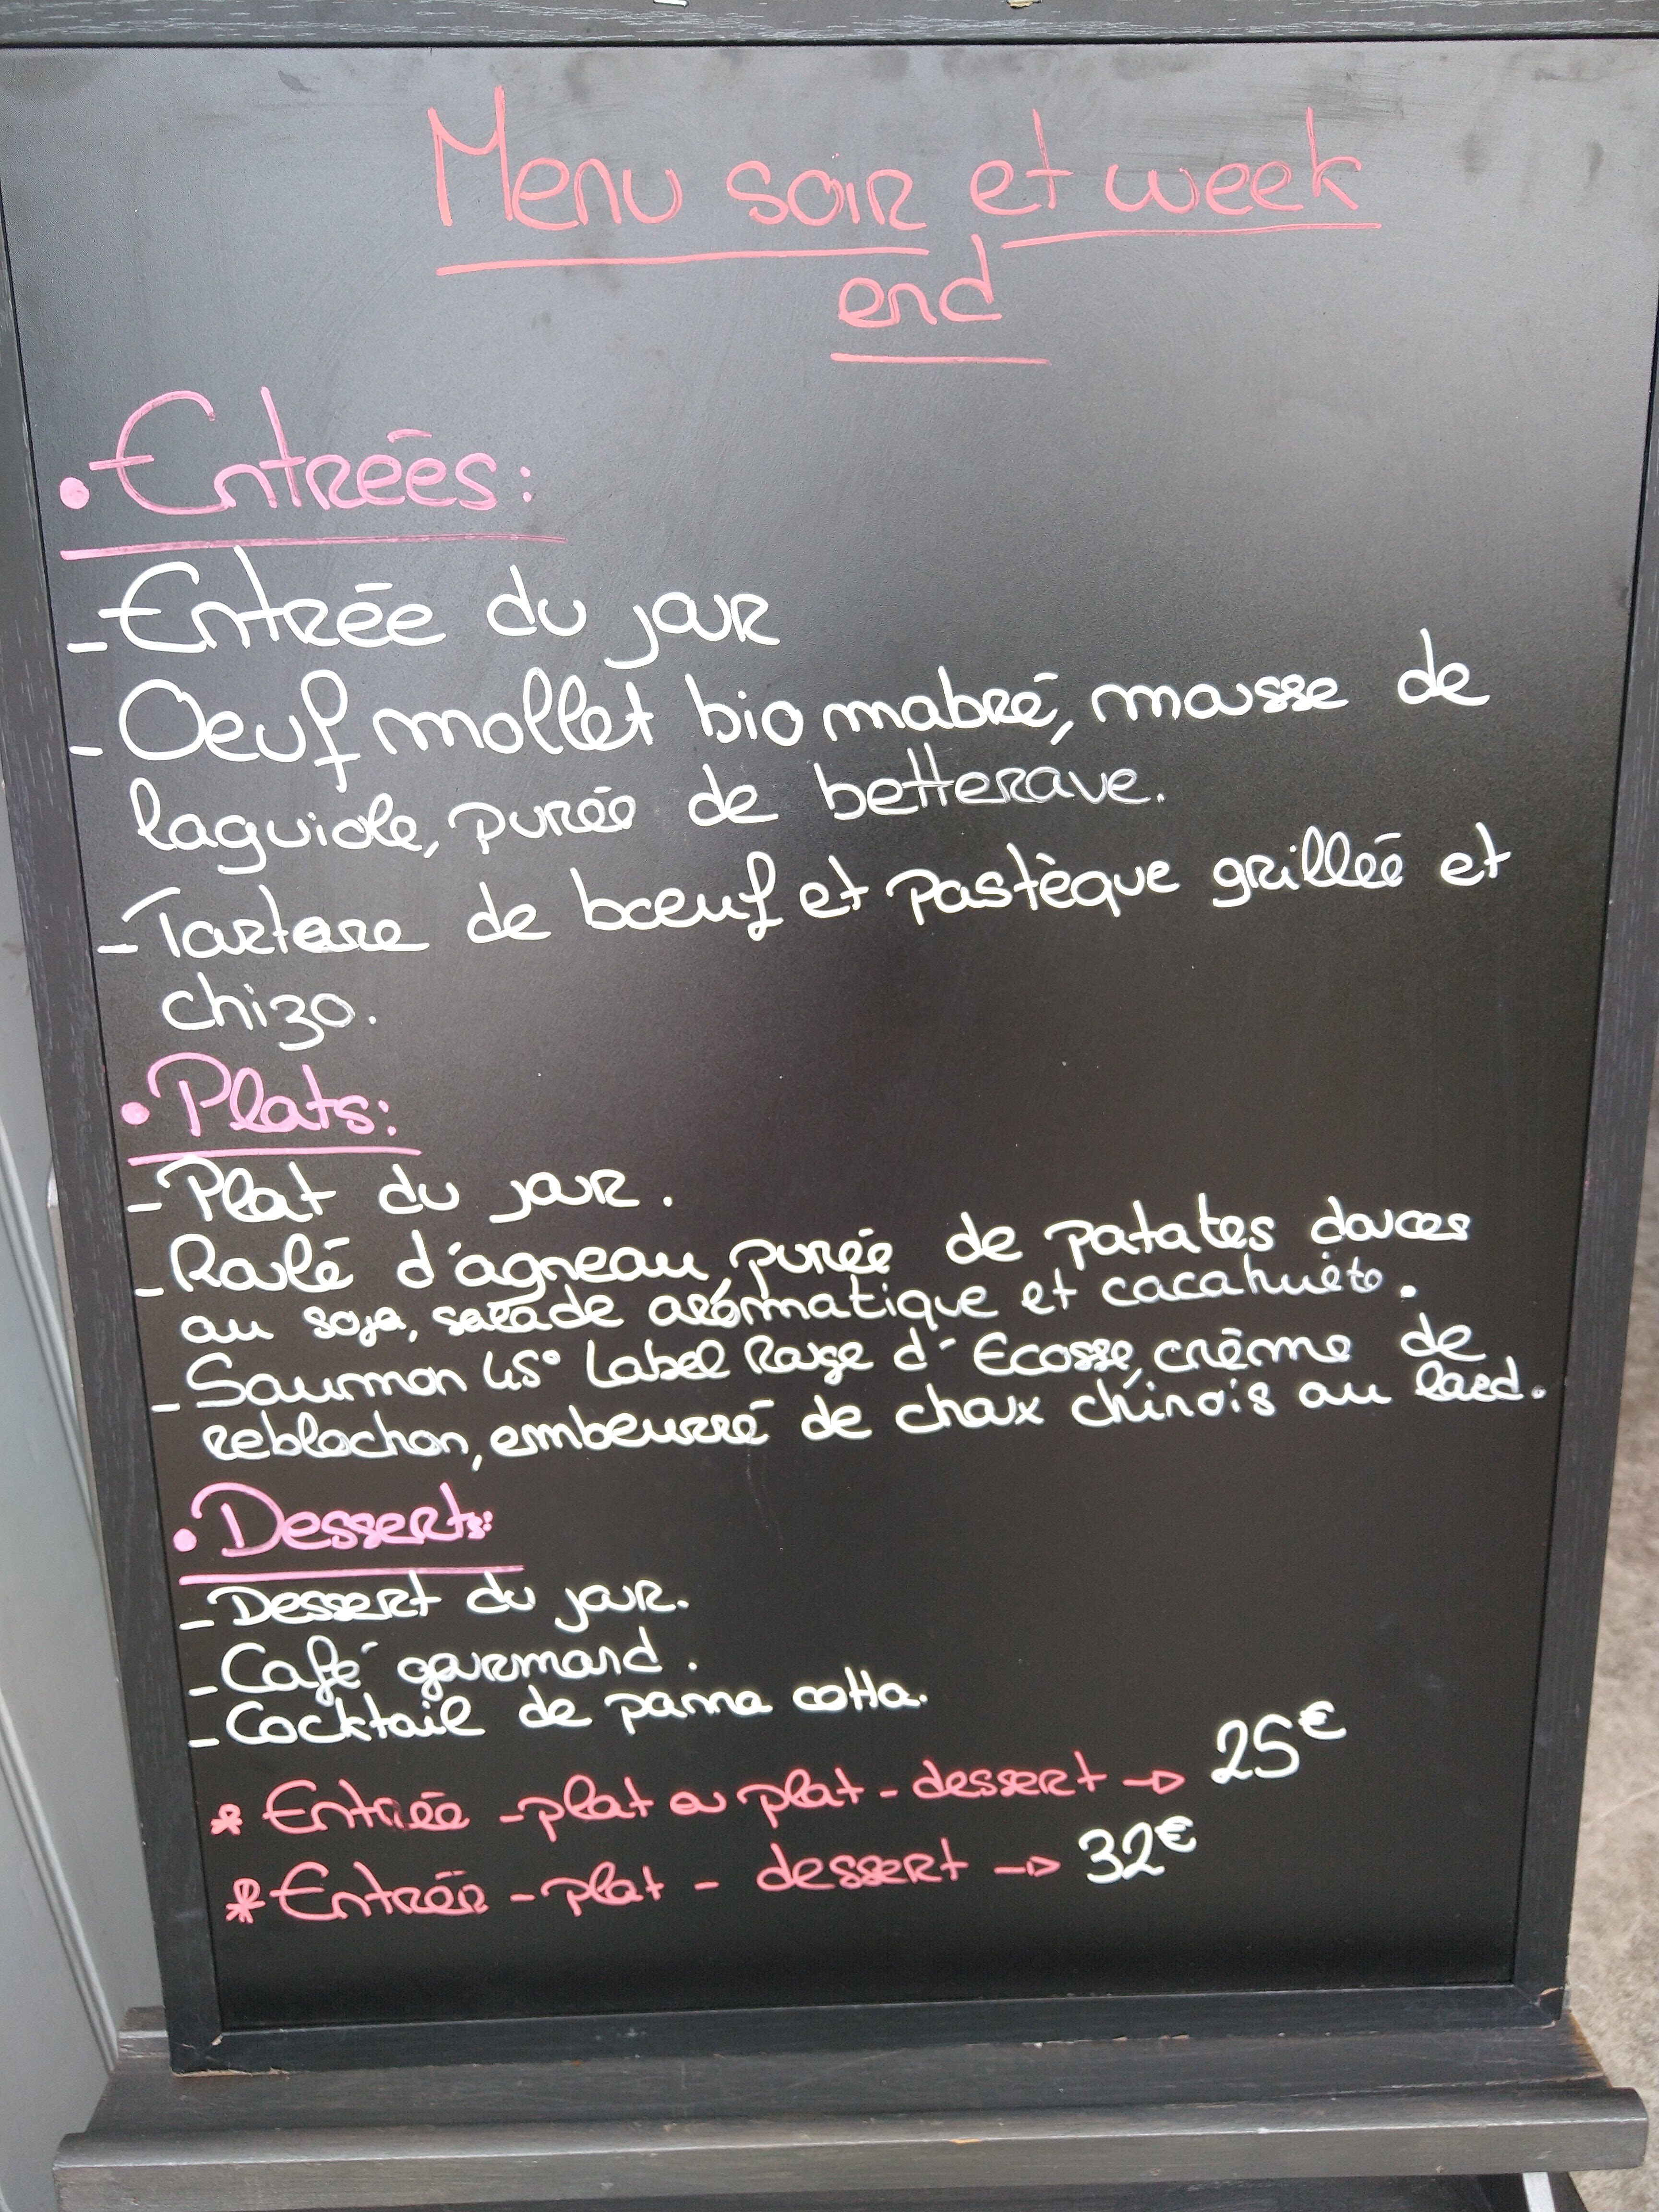 Menu soir et week
end
• Entrées:
- Entrée du jour
- Oeuf mollet bio mabré, mousse de
laguiole, purée de betterave.
- Tartare de bœuf et pastèque grillée et
chizo.
• Plats:
- Plat du jour.
- Roulé d'agneau, purée de patates douces
au soja, salade arômatique et cacahuète.
- Saumon 45° Label Rouge d'Ecosse, crème de
reblochon, embeurré de choux chinois au lard.
• Desserts:
- Dessert du jour.
- Café gourmand.
- Cocktail de panna cotta.
* Entrée - plat ou plat - dessert → 25€
* Entrée - plat - dessert → 32€